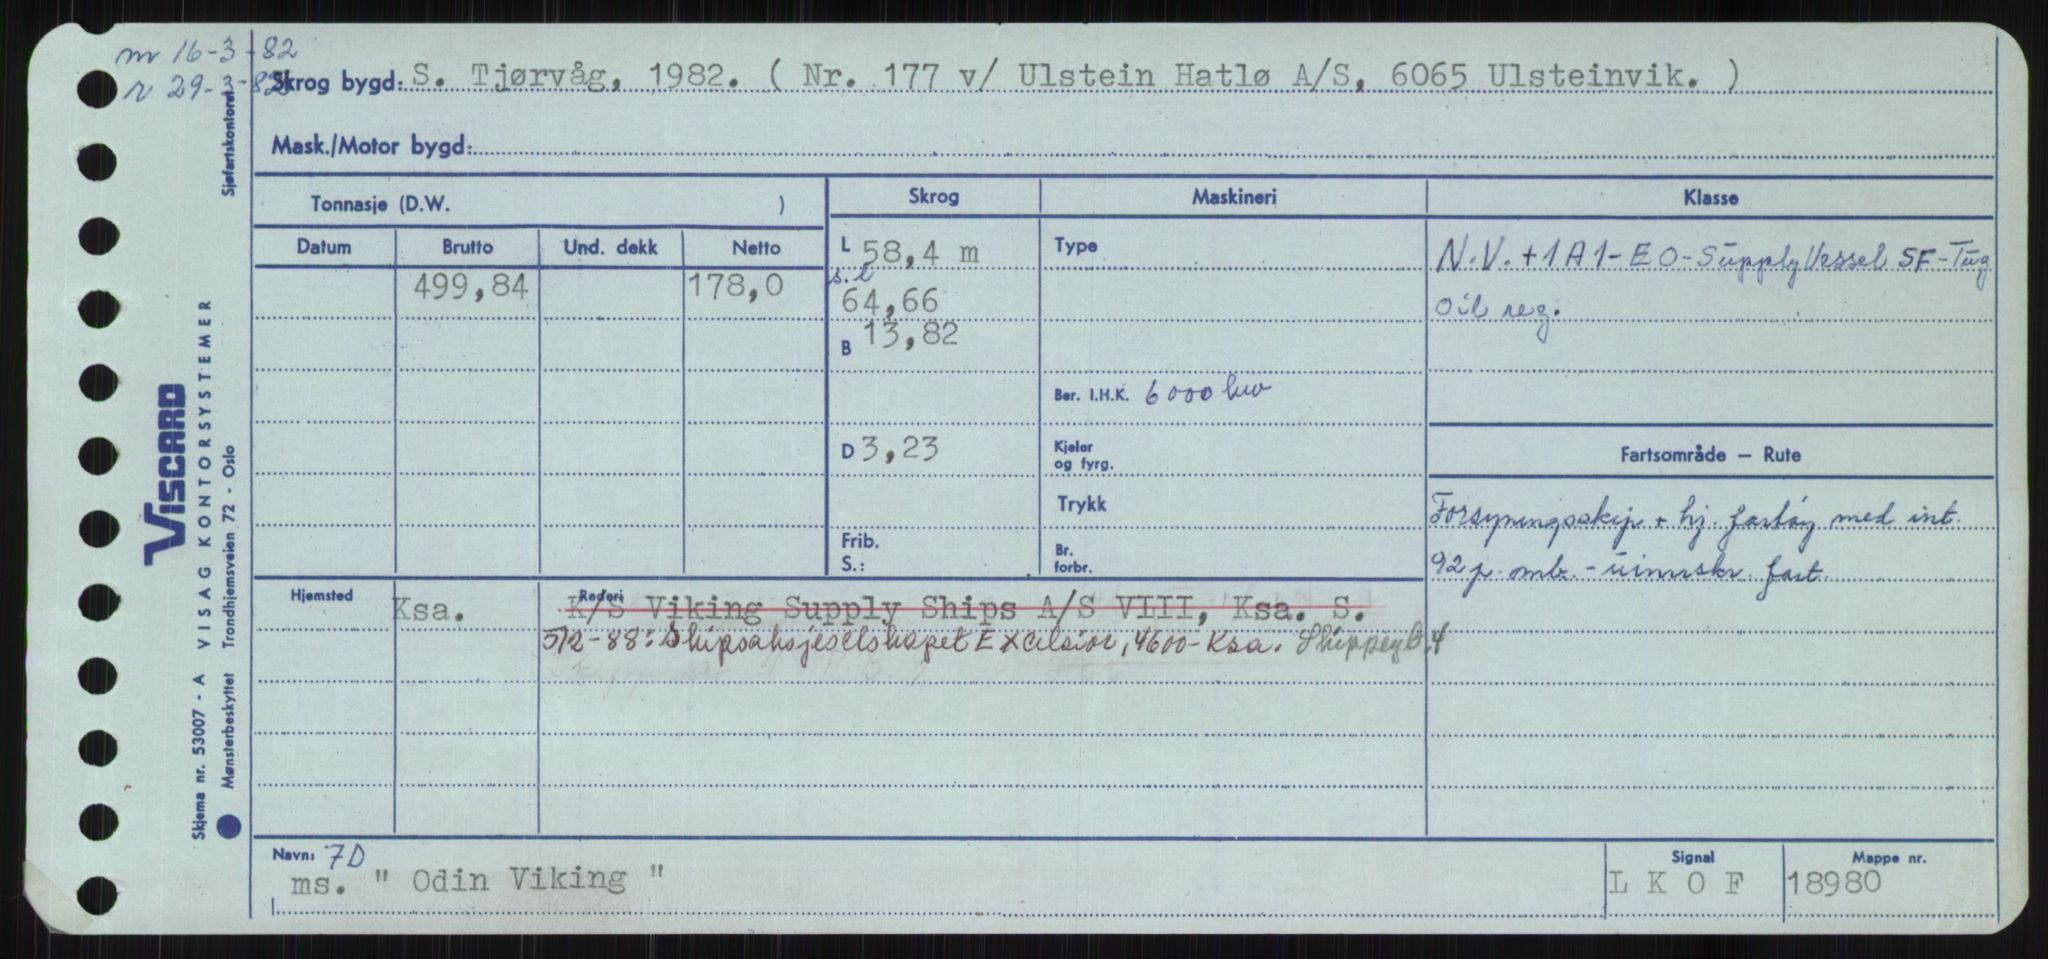 m 16-3-82
r 29-3-82
Skrog bygd: S. Tjørvåg, 1982. ( Nr. 177 v/ Ulstein Hatlø A/S, 6065 Ulsteinvik. )
Mask./Motor bygd:
Tonnasje (D.W. )
Skrog
Maskineri
Klasse
Datum Brutto Und. dekk Netto
499,84 178,0
L 58,4 m
s.l
64,66
B 13,82
D 3,23
Frib.
S.:
Type
Ber. I.H.K. 6000 hw
Kjeler
og fyrg.
Trykk
Br.
forbr.
N.V. + 1A1 - EO - Supply Vessel SF - Tug
Oil reg.
Fartsområde — Rute
Forsyningsskip + hj. fartøy med int.
92 p. omb. - fart.
Hjemsted Rederi
Ksa. K/S Viking Supply Ships A/S VIII, Ksa. S.
5/2-88: Skipsaksjeselskapet Excelsior, 4600- Ksa.
Navn: 7D
ms. " Odin Viking "
Signal
L K O F
Mappe nr.
18980
Sjøfartskontoret
VISCARD
VISAG KONTORSYSTEMER
Skjema nr. 53007 - A
Mønsterbeskyttet Trondhjemsveien 72 - Oslo